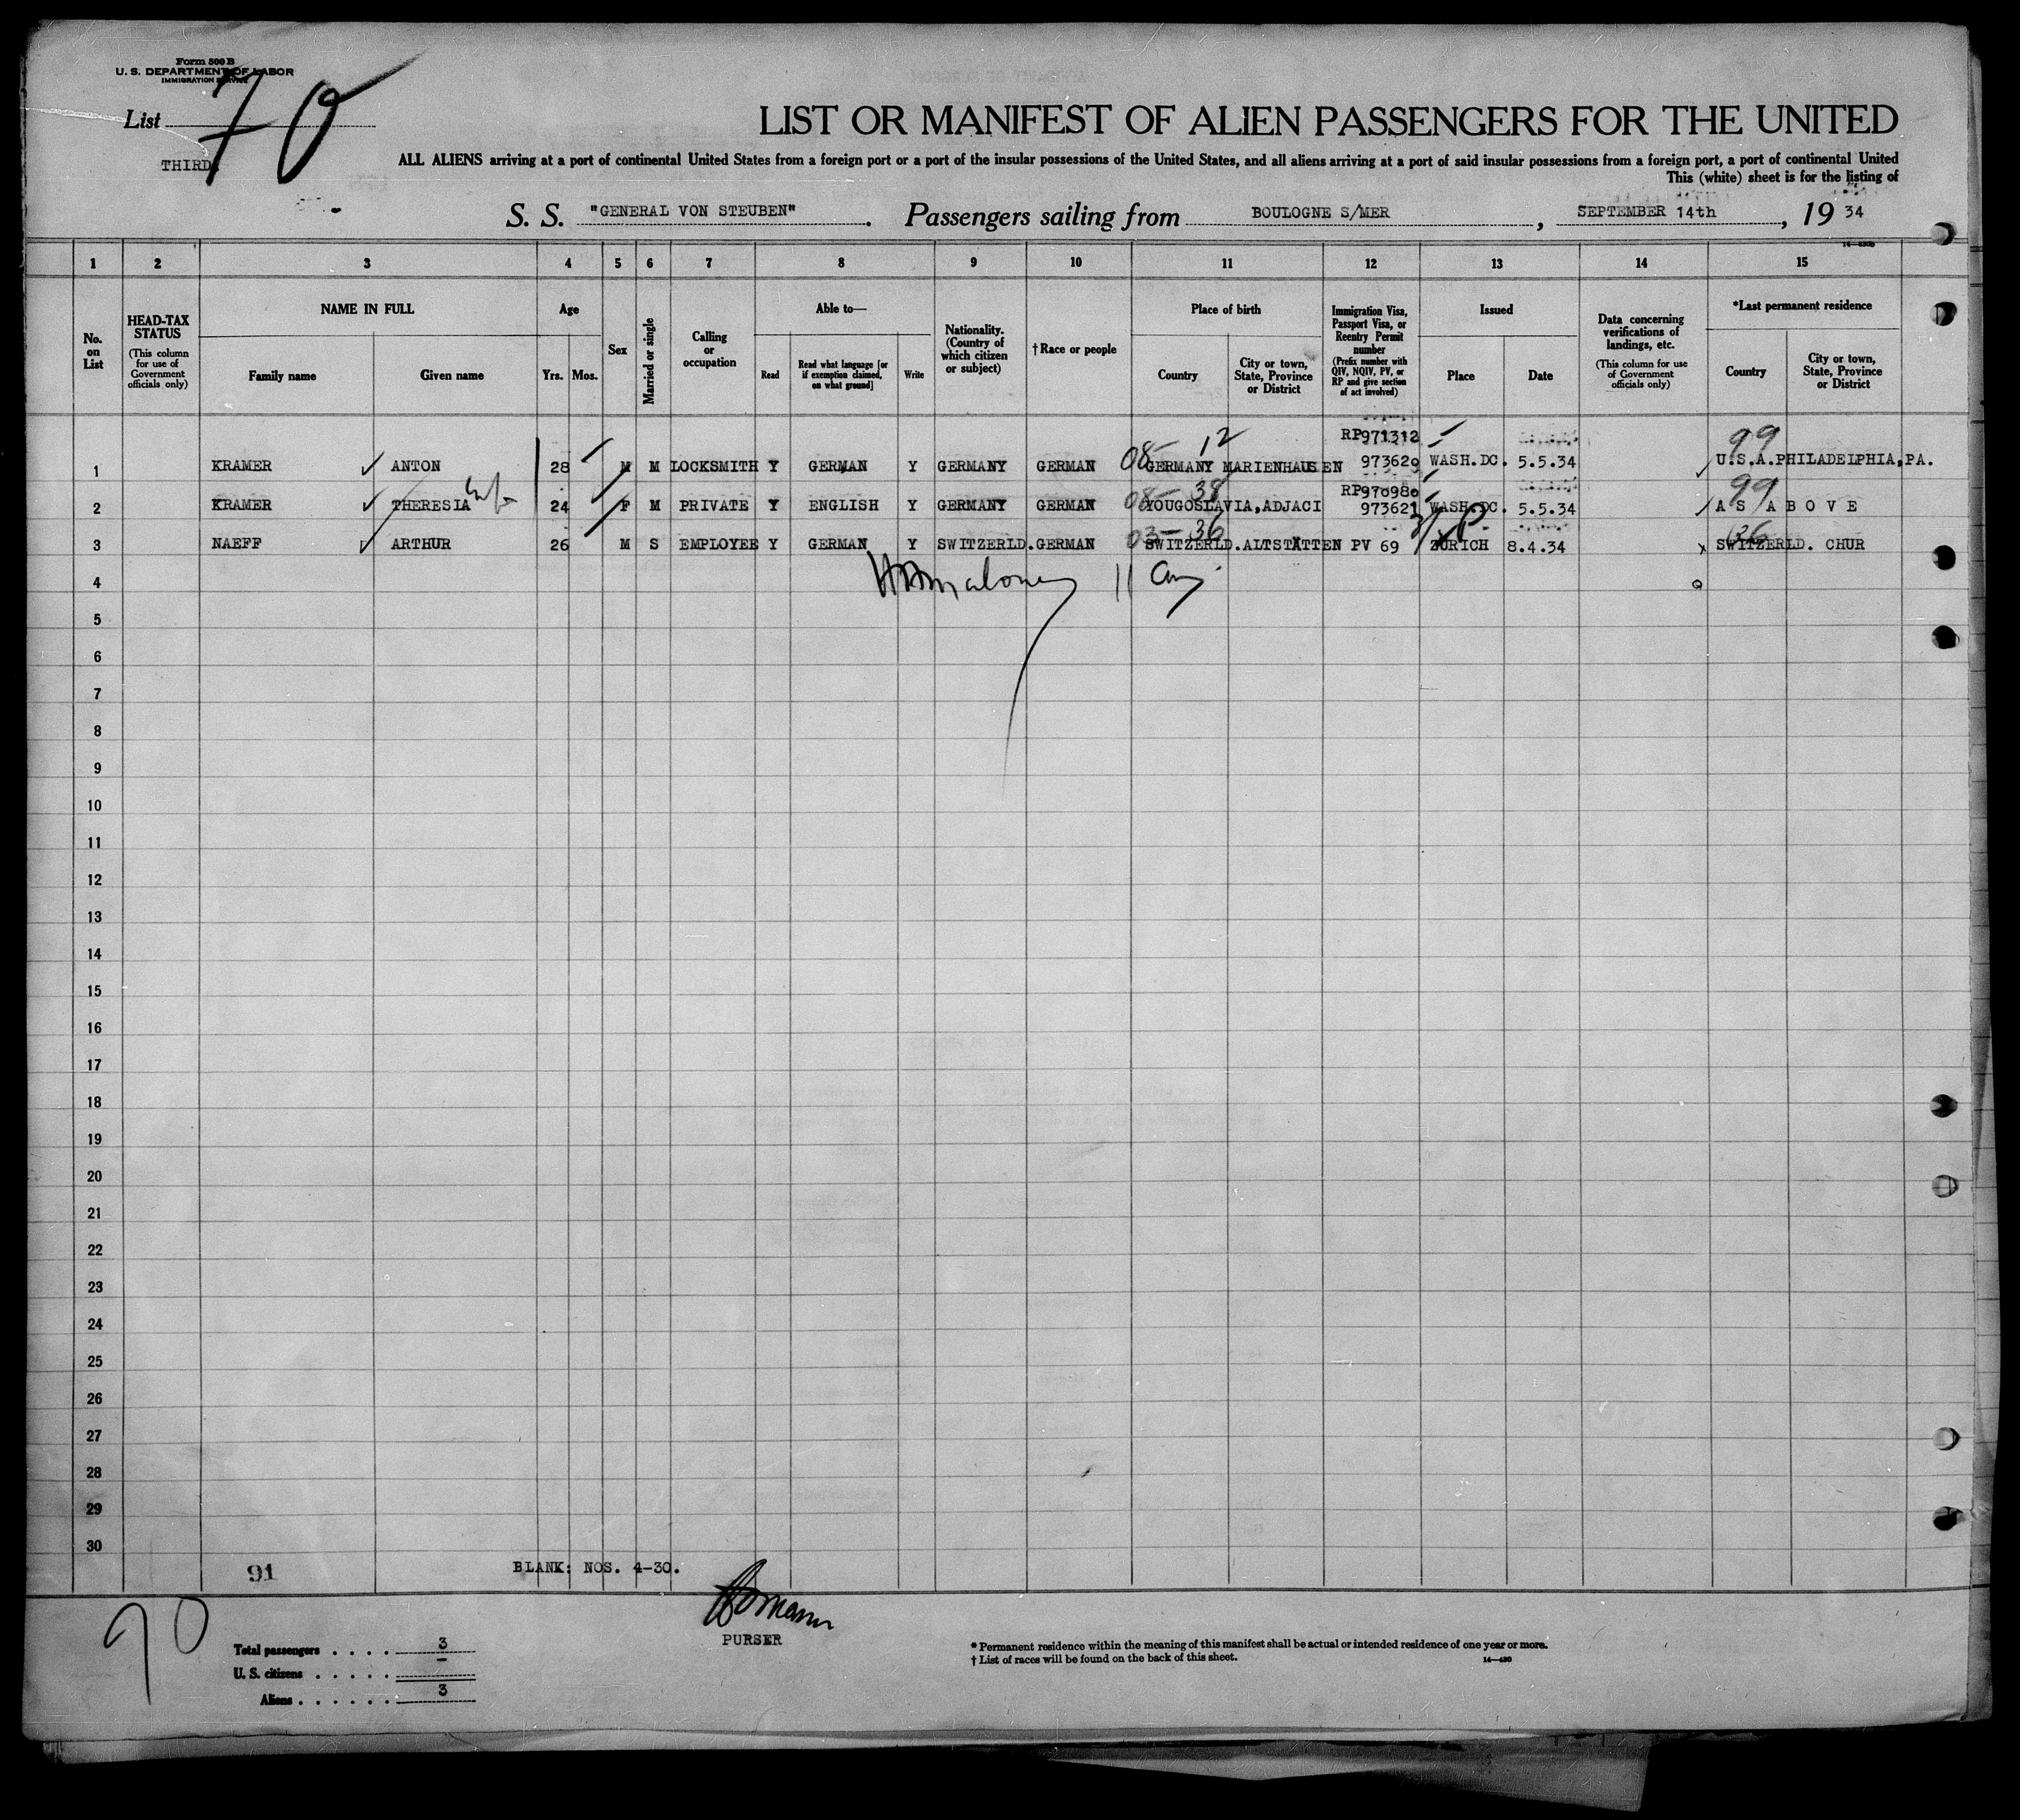 Form 500 B
U. S. DEPARTMENT OF LABOR
IMMIGRATION SERVICE
List 70
THIRD
LIST OR MANIFEST OF ALIEN PASSENGERS FOR THE UNITED
ALL ALIENS arriving at a port of continental United States from a foreign port or a port of the insular possessions of the United States, and all aliens arriving at a port of said insular possessions from a foreign port, a port of continental United
This (white) sheet is for the listing of
S. S. "GENERAL VON STEUBEN". Passengers sailing from BOULOGNE S/MER, SEPTEMBER 14th, 19 34
1 2 3 4 5 6 7 8 9 10 11 12 13 14 15
No. on List
HEAD-TAX STATUS (This column for use of Government officials only)
NAME IN FULL
Family name Given name
Age
Yrs. Mos.
Sex
Married or single
Calling or occupation
Able to—
Read Read what language [or if exemption claimed, on what ground] Write
Nationality. (Country of which citizen or subject)
† Race or people
Place of birth
Country City or town, State, Province or District
Immigration Visa, Passport Visa, or Reentry Permit number (Prefix number with QIV, NQIV, PV, or RP and give section of act involved)
Issued
Place Date
Data concerning verifications of landings, etc. (This column for use of Government officials only)
*Last permanent residence
Country City or town, State, Province or District
RP971312 99
08- 12
1 KRAMER ANTON 28 M M LOCKSMITH Y GERMAN Y GERMANY GERMAN GERMANY MARIENHAUSEN 973620 WASH.DC. 5.5.34 U.S.A.PHILADELPHIA,PA.
RP970980 99
08- 38
2 KRAMER THERESIA 24 F M PRIVATE Y ENGLISH Y GERMANY GERMAN YOUGOSLAVIA,ADJACI 973621 WASH.DC. 5.5.34 A S A B O V E
03- 36 36
3 NAEFF ARTHUR 26 M S EMPLOYEE Y GERMAN Y SWITZERLD. GERMAN SWITZERLD. ALTSTÄTTEN PV 69 ZURICH 8.4.34 SWITZERLD. CHUR
4
5
6
7
8
9
10
11
12
13
14
15
16
17
18
19
20
21
22
23
24
25
26
27
28
29
30
91 BLANK: NOS. 4-30.
90
PURSER
Total passengers . . . . 3
U. S. citizens . . . . . -
Aliens . . . . . . 3
* Permanent residence within the meaning of this manifest shall be actual or intended residence of one year or more.
† List of races will be found on the back of this sheet.
14—430